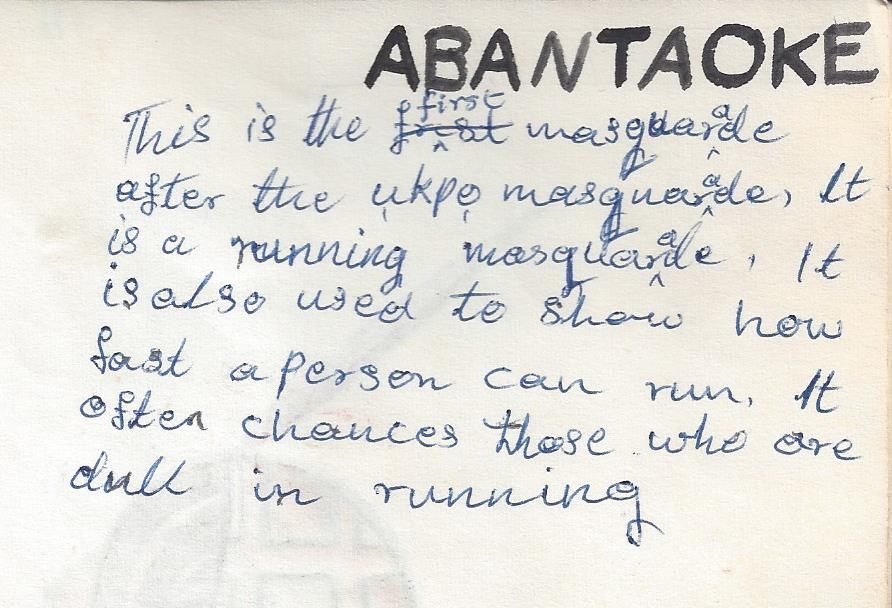 ABANTAOKE
This is the first masquarade
after the ụkpọ masquarade, It
is a running masquarade, It
is also used to show how
fast a person can run. It
often chances those who are
dull in running